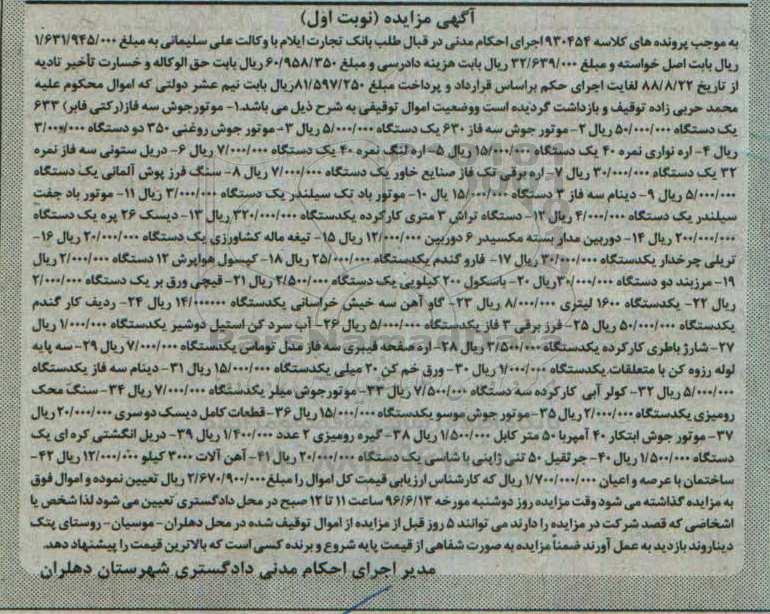 آگهی مزایده (نوبت اول)
به موجب پرونده های کلاسه ۹۳۰۴۵۴ اجرای احکام مدنی در قبال طلب بانک تجارت ایلام با وکالت علی سلیمانی به مبلغ ۱/۶۳۱/۹۴۵/۰۰۰
ریال بابت اصل خواسته و مبلغ ۳۲/۶۳۹/۰۰۰ ریال بابت هزینه دادرسی و مبلغ ۶۰/۹۵۸/۳۵۰ ریال بابت حق الوکاله و خسارت تأخیر تادیه
از تاریخ ۸۸/۸/۲۲ لغایت اجرای حکم براساس قرارداد و پرداخت مبلغ ۸۱/۵۹۷/۲۵۰ریال بابت نیم عشر دولتی که اموال محکوم علیه
محمد حربی زاده توقیف و بازداشت گردیده است ووضعیت اموال توقیفی به شرح ذیل می باشد.۱- موتورجوش سه فاز(رکتی فایر) ۶۳۳
یک دستگاه ۵۰/۰۰۰/۰۰۰ ریال ۲- موتور جوش سه فاز ۶۳۰ یک دستگاه ۵/۰۰۰/۰۰۰ ریال ۳- موتور جوش روغنی ۳۵۰ دو دستگاه ۳/۰۰۰/۰۰۰
ریال ۴- اره نواری نمره ۴۰ یک دستگاه ۱۵/۰۰۰/۰۰۰ ریال ۵- اره لنگ نمره ۴۰ یک دستگاه ۷/۰۰۰/۰۰۰ ریال ۶- دریل ستونی سه فاز نمره
۳۲ یک دستگاه ۳۰/۰۰۰/۰۰۰ ریال ۷- اره برقی تک فاز صنایع خاور یک دستگاه ۷/۰۰۰/۰۰۰ ریال ۸- سنگ فرز پوش آلمانی یک دستگاه
۵/۰۰۰/۰۰۰ ریال ۹- دینام سه فاز ۳ دستگاه ۱۵/۰۰۰/۰۰۰ یال ۱۰- موتور باد تک سیلندر یک دستگاه ۳/۰۰۰/۰۰۰ ریال ۱۱- موتور باد جفت
سیلندر یک دستگاه ۴/۰۰۰/۰۰۰ ریال ۱۲- دستگاه تراش ۳ متری کارکرده یکدستگاه ۳۲۰/۰۰۰/۰۰۰ ریال ۱۳- دیسک ۲۶ پره یک دستگاه
۲۰۰/۰۰۰/۰۰۰ ریال ۱۴- دوربین مدار بسته مکسیدر ۶ دوربین ۱۲/۰۰۰/۰۰۰ ریال ۱۵- تیغه ماله کشاورزی یک دستگاه ۲۰/۰۰۰/۰۰۰ ریال ۱۶-
تریلی چرخدار یکدستگاه ۳۰/۰۰۰/۰۰۰ ریال ۱۷- فارو گندم یکدستگاه ۲۵/۰۰۰/۰۰۰ ریال ۱۸- کپسول هوابرش ۱۲ دستگاه ۲/۰۰۰/۰۰۰ ریال
۱۹- مرزبند دو دستگاه ۳۰/۰۰۰/۰۰۰ریال ۲۰- باسکول ۲۰۰ کیلویی یک دستگاه ۲/۵۰۰/۰۰۰ ریال ۲۱- قیچی ورق بر یک دستگاه ۲/۰۰۰/۰۰۰
ریال ۲۲- یکدستگاه ۱۶۰۰ لیتری ۸/۰۰۰/۰۰۰ ریال ۲۳- گاو آهن سه خیش خراسانی یکدستگاه ۱۴/۰۰۰۰۰۰ ریال ۲۴- ردیف کار گندم
یکدستگاه ۵۰/۰۰۰/۰۰۰ ریال ۲۵- فرز برقی ۳ فاز یکدستگاه ۵/۰۰۰/۰۰۰ ریال ۲۶- آب سرد کن استیل دوشیر یکدستگاه ۱/۰۰۰/۰۰۰ ریال
۲۷- شارژ باطری کارکرده یکدستگاه ۳/۵۰۰/۰۰۰ ریال ۲۸- اره صفحه فیبری سه فاز مدل توماس یکدستگاه ۷/۰۰۰/۰۰۰ ریال ۲۹- سه پایه
لوله رزوه کن با متعلقات یکدستگاه ۱/۰۰۰/۰۰۰ ریال ۳۰- ورق خم کن ۲۰ میلی یکدستگاه ۱۵/۰۰۰/۰۰۰ ریال ۳۱- دینام سه فاز یکدستگاه
۵/۰۰۰/۰۰۰ ریال ۳۲- کولر آبی کارکرده سه دستگاه ۷/۵۰۰/۰۰۰ ریال ۳۳- موتورجوش میلر یکدستگاه ۷/۰۰۰/۰۰۰ ریال ۳۴- سنگ محک
رومیزی یکدستگاه ۲/۰۰۰/۰۰۰ ریال ۳۵- موتور جوش موسو یکدستگاه ۱۵/۰۰۰/۰۰۰ ریال ۳۶- قطعات کامل دیسک دوسری ۲۰/۰۰۰/۰۰۰ ریال
۳۷- موتور جوش ابتکار ۴۰ آمپربا ۵۰ متر کابل ۱/۵۰۰/۰۰۰ ریال ۳۸- گیره رومیزی ۲ عدد ۱/۴۰۰/۰۰۰ ریال ۳۹- دریل انگشتی کره ای یک
دستگاه ۱/۵۰۰/۰۰۰ ریال ۴۰- جرثقیل ۵۰ تنی ژاپنی با شاسی یک دستگاه ۲۰/۰۰۰/۰۰۰ ریال ۴۱- آهن آلات ۳۰۰۰ کیلو ۱۲/۰۰۰/۰۰۰ ریال ۴۲-
ساختمان با عرصه و اعیان ۱/۷۰۰/۰۰۰/۰۰۰ ریال که کارشناس ارزیابی قیمت کل اموال را مبلغ ۲/۶۷۰/۹۰۰/۰۰۰ ریال تعیین نموده و اموال فوق
به مزایده گذاشته می شود وقت مزایده روز دوشنبه مورخه ۹۶/۶/۱۳ ساعت ۱۱ تا ۱۲ صبح در محل دادگستری تعیین می شود لذا شخص یا
اشخاصی که قصد شرکت در مزایده را دارند می توانند ۵ روز قبل از مزایده از اموال توقیف شده در محل دهلران- موسیان- روستای پتک
دیناروند بازدید به عمل آورند ضمناً مزایده به صورت شفاهی از قیمت پایه شروع و برنده کسی است که بالاترین قیمت را پیشنهاد دهد.
مدیر اجرای احکام مدنی دادگستری شهرستان دهلران